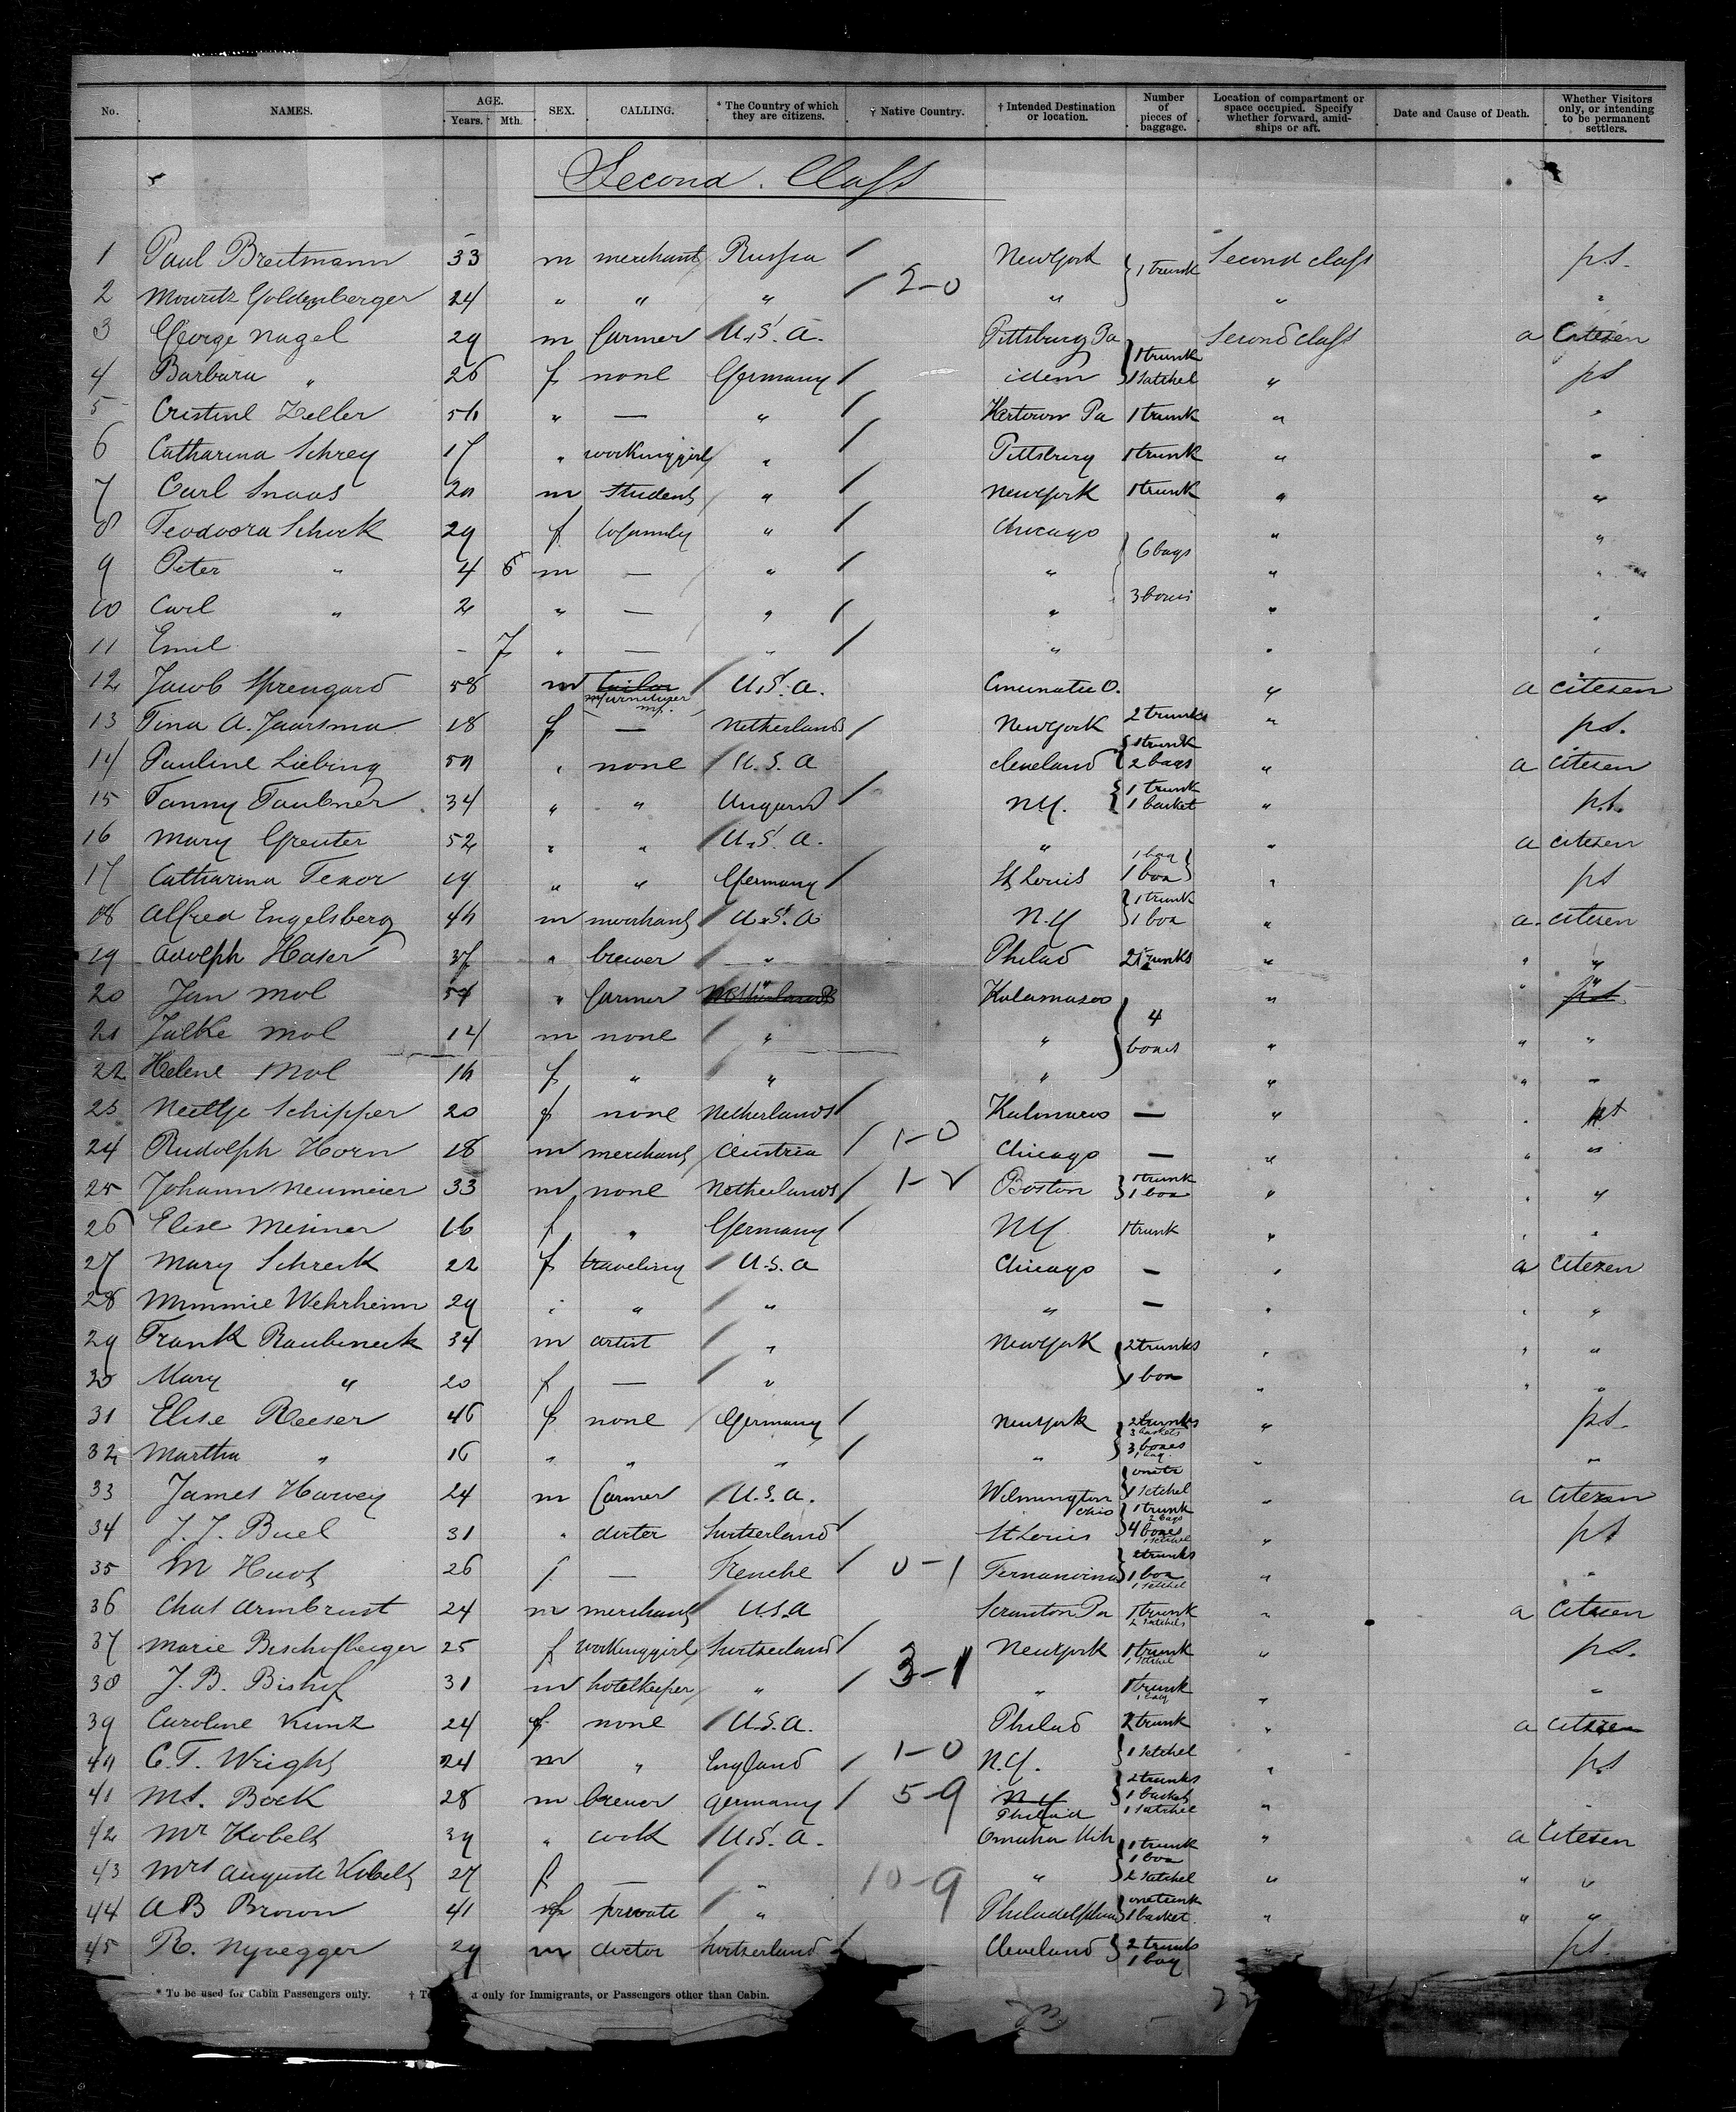 No. NAMES. AGE. Years. Mth. SEX. CALLING. * The Country of which they are citizens. † Native Country. † Intended Destination or location. Number of pieces of baggage. Location of compartment or space occupied. Specify whether forward, amidships or aft. Date and Cause of Death. Whether Visitors only, or intending to be permanent settlers.
Second Class
1 Paul Breitmann 33 m merchant Russia / New York 1 trunk Second class p.s.
2 Mowritz Goldenberger 24 " " " / 2-0 " " "
3 George Nagel 29 m farmer U.S.A. Pittsburg Pa Second class a Citesen
4 Barbara " 26 f none Germany / idem 1 trunk 1 satchel " ps
5 Cristine Zeller 56 " — " / Pa 1 trunk " "
6 Catharina Schrey 17 " workinggirl " / Pittsburg 1 trunk " "
7 Carl Snaas 20 m student " / New York 1 trunk " "
8 Teodoora Schock 29 f to family " / Chicago 6 bags " "
9 Peter " 4 6 m — " / " " "
10 Carl " 2 " — " / " 3 boxes " "
11 Emil - 7 " — " / " " "
12 Jacob Sprengard 58 m tailor / U.S.A. Cincinatie O. " a citesen
13 Tina A. Jaarsma 18 f — Netherlands / New York 2 trunks " ps.
14 Pauline Liebing 50 " none / U.S.A Cleveland 1 trunk 2 bags " a citesen
15 Fanny Taubner 34 " " Ungarn / N.Y. 1 trunk 1 basket " p.s.
16 Mary Greuter 52 " " / U.S.A. " " a citesen
17 Catharina Texor 19 " " Germany / St Louis 1 bag 1 box " ps
18 Alfred Engelsberg 40 m merchant / U.S.A N.Y 1 trunk 1 box " a citesen
19 Adolph Haser 37 " brewer " Philad 2 trunks " " "
20 Jan Mol 54 " farmer Netherlands " Kalamasoo " " ps "
21 Jalke Mol 14 m none " " 4 boxes " " "
22 Helene Mol 16 f " " " " " "
23 Neeltje Schipper 20 f none Netherlands / — " " ps
24 Rudolph Horn 18 m merchant Austria / 1-0 Chicago — " " "
25 Johann Neumeier 33 m none Netherlands / 1-2 Boston 1 trunk 1 box " " "
26 Elise Mesmer 16 f " Germany / NY 1 trunk " " "
27 Mary Schreck 22 f traveling / U.S.A Chicago — " a citezen
28 Mimmie Wehrheim 29 " " / " " — " " "
29 Frank Raubeneck 34 m artist / " New York 2 trunks " " "
30 Mary " 20 f — / " 1 box " " "
31 Elise Reeser 46 f none Germany / New York 2 trunks 3 baskets " p.s.
32 Martha " 16 " " " / " 3 boxes 1 bag " "
33 James Harvey 24 m farmer / U.S.A. Wilmington Ohio 1 satchel " a citezen
34 J. J. Buel 31 " docter Switserland / St Louis 1 trunk 2 bags 4 boxes " ps
35 M Huot 26 f — Frenche / 0-1 Fernandina 2 trunks 1 box 1 satchel " "
36 Chas Armbrust 24 m merchant / U.S.A Scranton Pa 1 trunk 2 satchels " a Citesen
37 Marie Bischofberger 25 f workinggirl Switserland / New York 1 trunk 1 satchel " ps.
38 J. B. Bishof 31 m hotelkeeper " / 3-1 " 1 trunk 1 bag " "
39 Caroline Kunz 24 f none / U.S.A. Philad 2 trunk " a citesen
40 C. T. Wright 24 m " England / 1-0 N.Y. 1 satchel " ps
41 Ms. Bock 28 m brewer Germany / 5-9 N.Y Philaid 2 trunks 1 basket 1 satchel " "
42 Mr Kobelt 39 " cook / U.S.A. Omaha 1 trunk 1 box " a Citesen
43 Mrs Auguste Kobelt 27 f — / " 10-9 " 2 satchel " " "
44 A B Brown 41 f private / " Philadelphia one trunk 1 basket " " "
45 R. Nyvegger 29 m doctor Switserland / Cleveland 2 trunks 1 bag ps.
* To be used for Cabin Passengers only. † To d only for Immigrants, or Passengers other than Cabin.